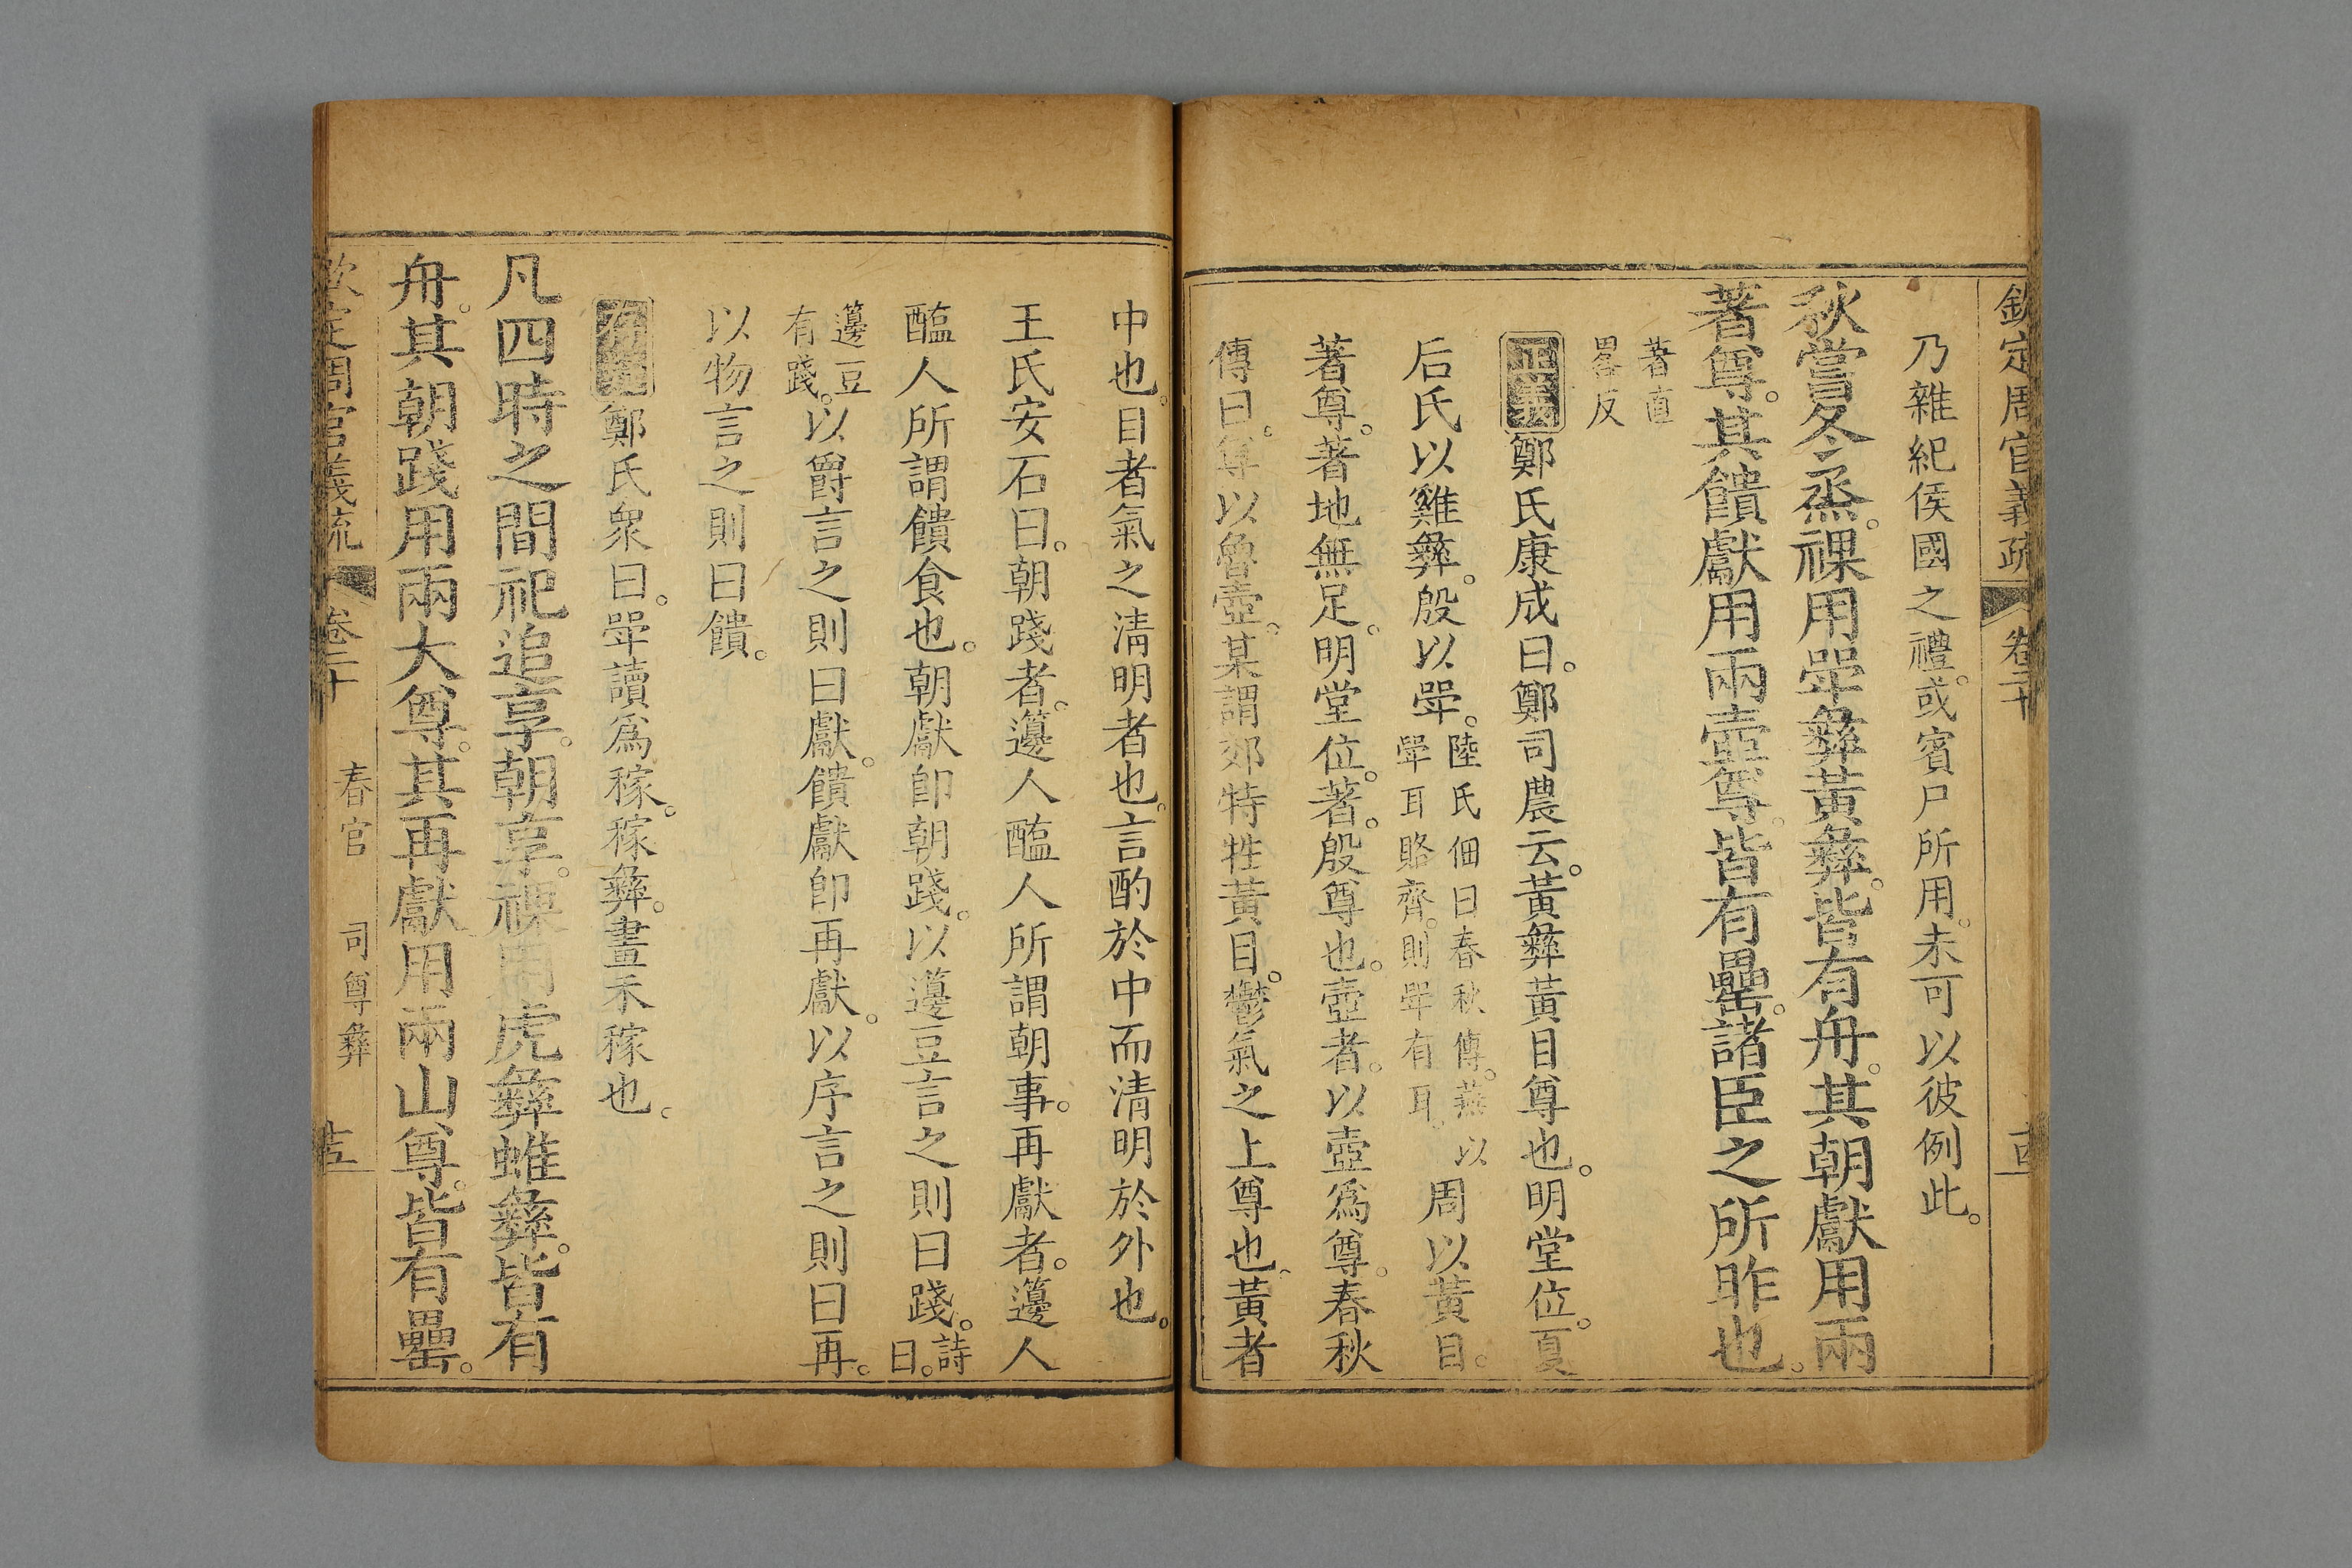 欽定周官義疏 卷二十 十四
乃雜紀侯國之禮。或賓尸所用。未可以彼例此。
秋嘗冬烝。祼用斝彝黃彝。皆有舟。其朝獻用兩
著尊。其饋獻用兩壺尊。皆有罍。諸臣之所昨也。
著直
畧反
正義 鄭氏康成曰。鄭司農云。黃彝黃目尊也。明堂位。夏
后氏以雞彝。殷以斝。
陸氏佃曰春秋傳。燕以
斝耳賂齊。則斝有耳。
周以黃目。
著尊。著地無足。明堂位。著。殷尊也。壺者。以壺為尊。春秋
傳曰。尊以魯壺。某謂郊特牲黃目。鬱氣之上尊也。黃者
中也。目者氣之清明者也。言酌於中而清明於外也。
王氏安石曰。朝踐者。籩人醢人所謂朝事。再獻者。籩人
醢人所謂饋食也。朝獻卽朝踐。以籩豆言之則曰踐。
詩
曰。
籩豆
有踐。
以爵言之則曰獻。饋獻卽再獻。以序言之則曰再。
以物言之則曰饋。
鄭氏衆曰。斝讀為稼。稼彝。畫禾稼也。
凡四時之間祀追享。朝享。祼用虎彝蜼彝。皆有
舟。其朝踐用兩大尊。其再獻用兩山尊。皆有罍。
欽定周官義疏 卷二十 春官 司尊彝 十五